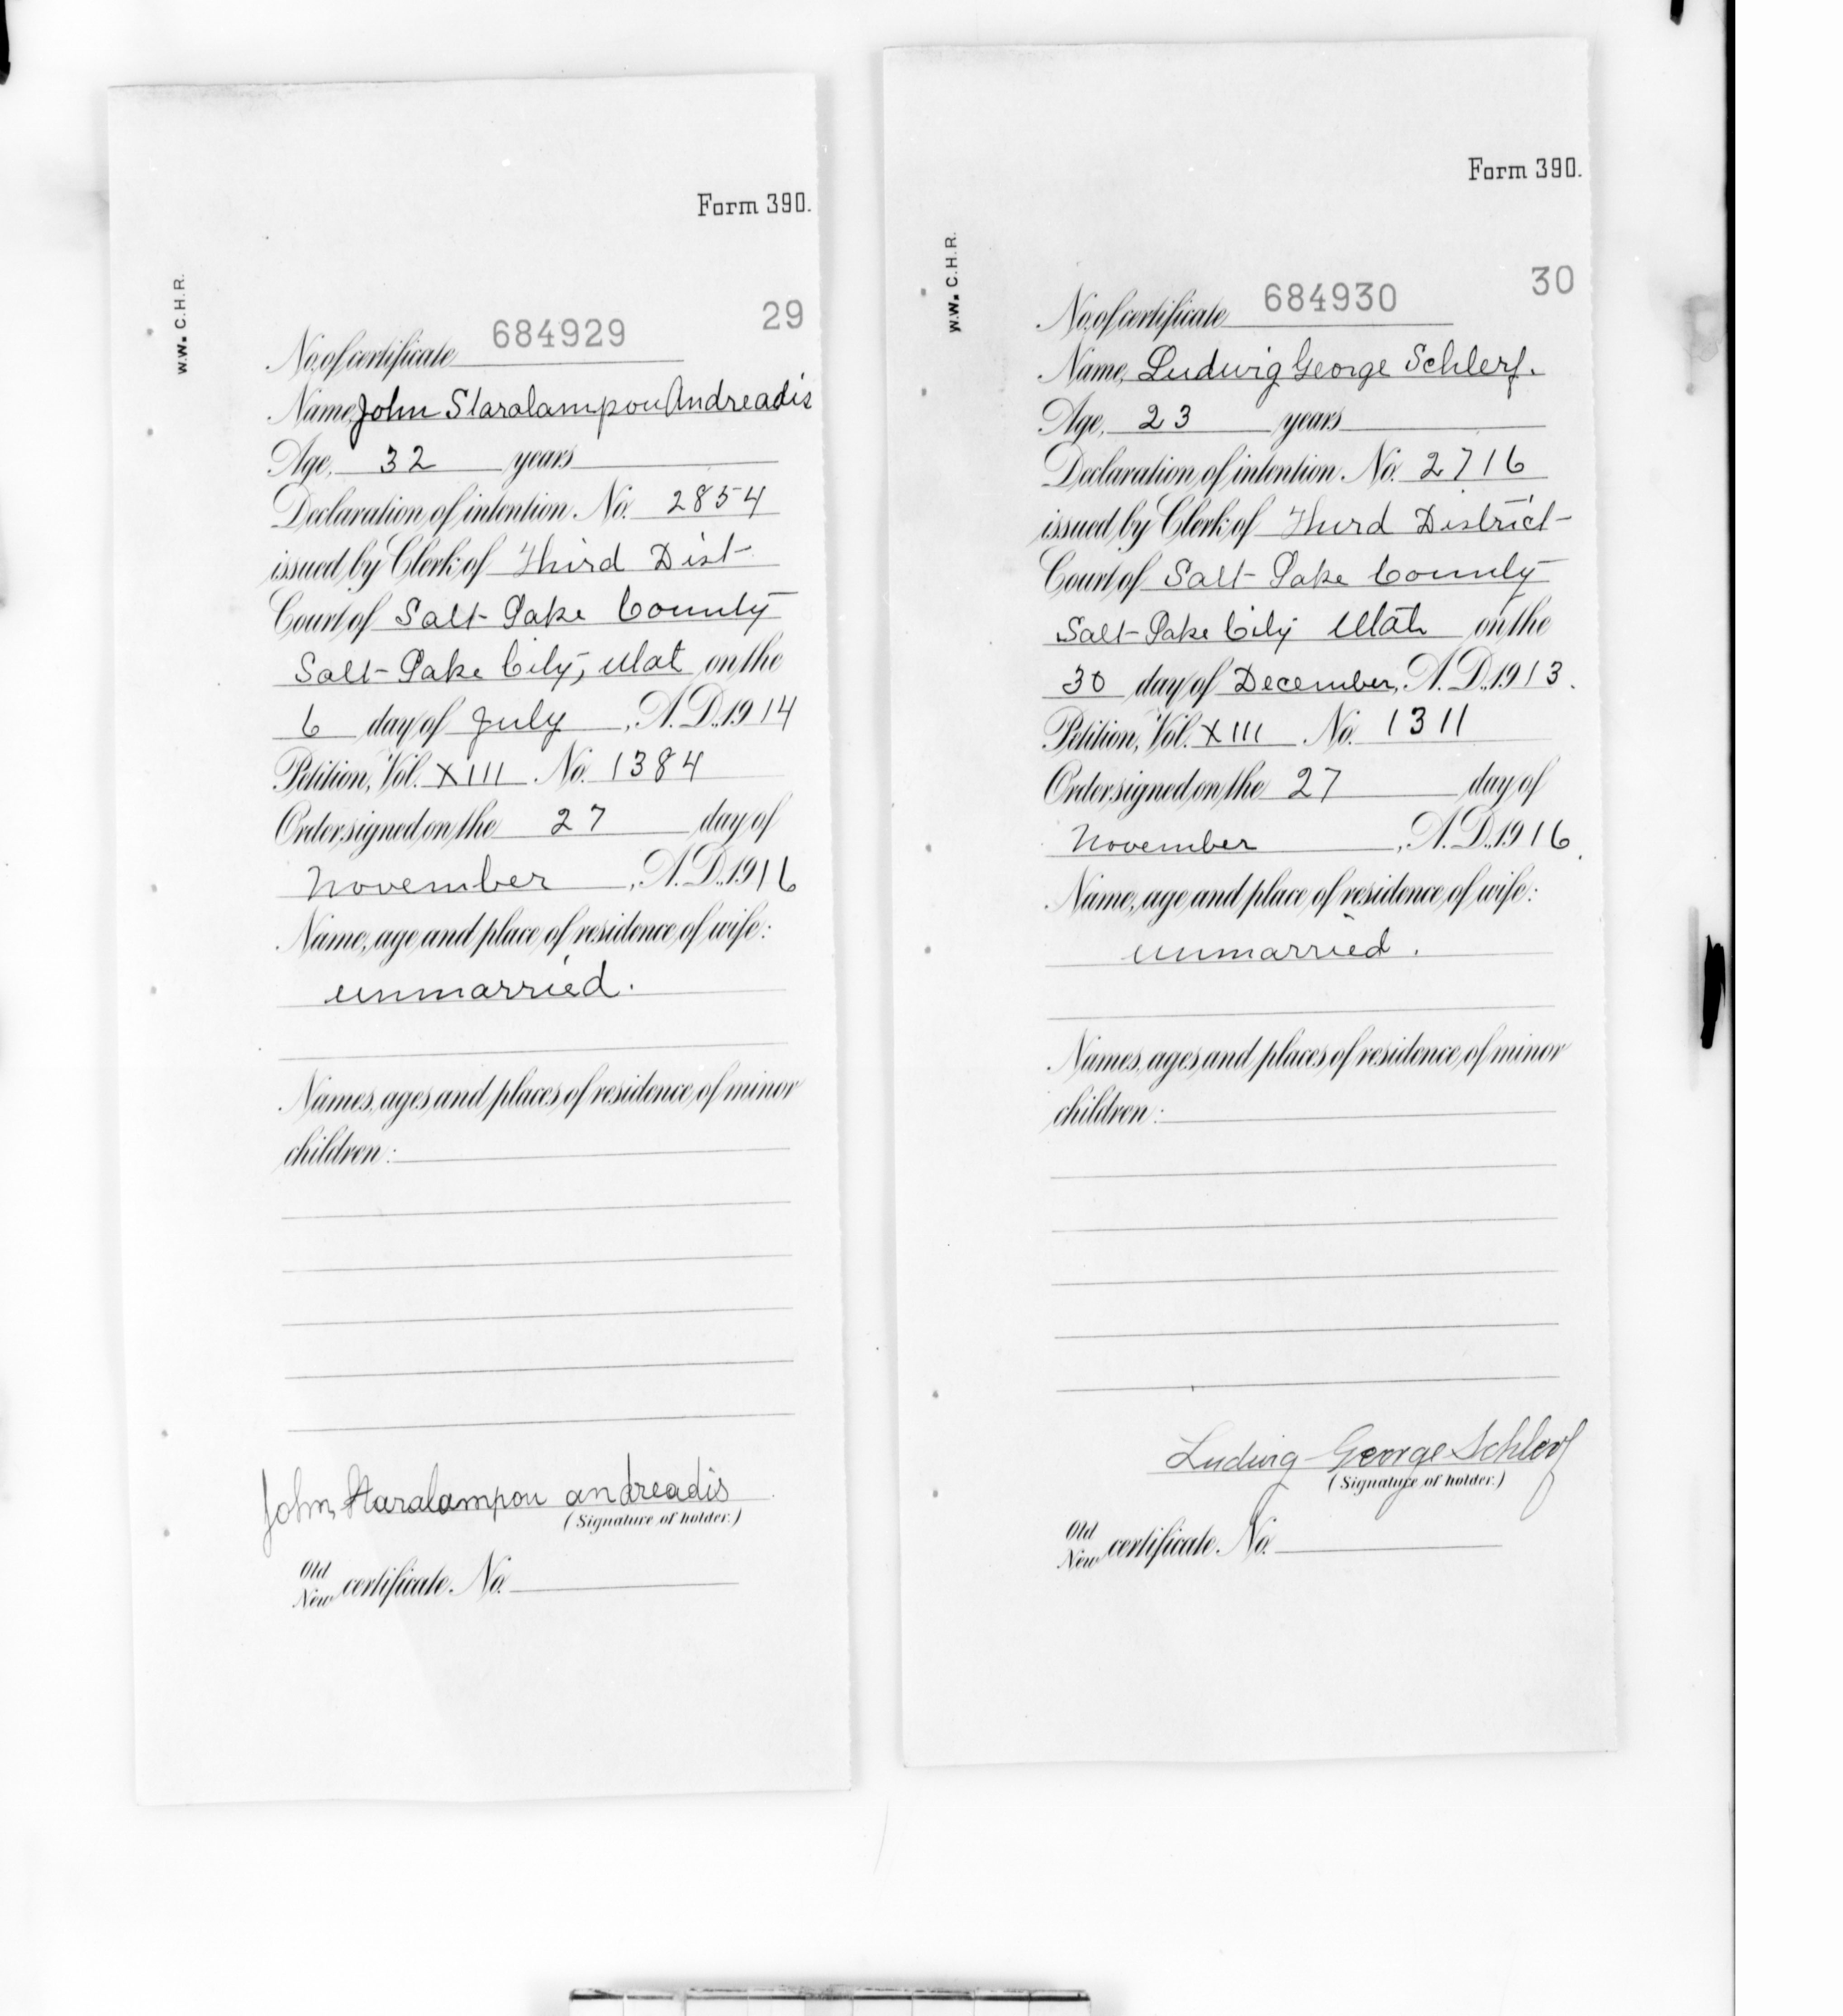 Form 390.
W.W. C.H.R.
29
No. of certificate 684929
Name, John Staralampou Andreadis
Age, 32 years
Declaration of intention. No. 2854
issued by Clerk of Third Dist
Court of Salt Lake County
Salt Lake City, Utah on the
6 day of July, A.D. 1914
Petition, Vol. XIII No. 1384
Order signed on the 27 day of
November, A.D. 1916
Name, age and place of residence of wife:
unmarried.
Names, ages and places of residence of minor
children:
John Staralampou andreadis
(Signature of holder.)
Old
New certificate. No.
Form 390.
W.W. C.H.R.
30
No. of certificate 684930
Name, Ludwig George Schlerf.
Age, 23 years
Declaration of intention. No. 2716
issued by Clerk of Third District
Court of Salt Lake County
Salt Lake City Utah on the
30 day of December, A.D. 1913.
Petition, Vol. XIII No. 1311
Order signed on the 27 day of
November, A.D. 1916.
Name, age and place of residence of wife:
unmarried.
Names, ages and places of residence of minor
children:
Ludwig George Schlerf
(Signature of holder.)
Old
New certificate. No.